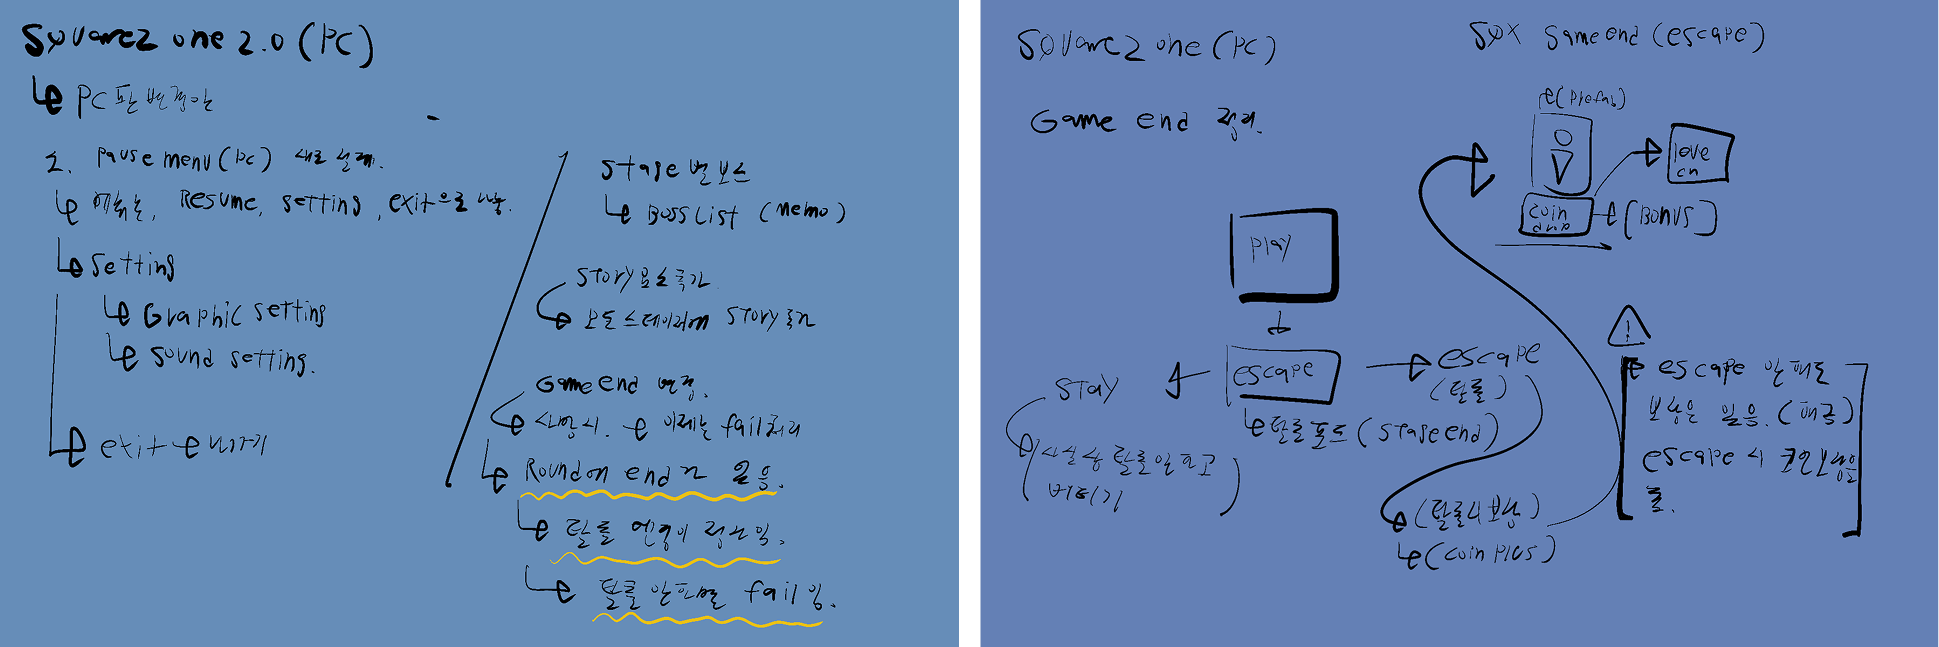 Squarezone 2.0 (PC)
PC판 변경안
1. Pause menu (PC) 새로 설계.
메뉴는, Resume, setting, exit으로 나눔.
Setting
Graphic setting
Sound setting.
exit 나가기
Stage별 보스
Boss List (Memo)
Story 요소 추가
모든 스테이지에 Story 추가
Game end 변경.
사망시. 이제는 fail처리
Round on end가 있음.
탈출 엔딩이 정식임.
탈출 안하면 fail임.
Squarezone (PC)
Game end 정리.
play
escape
탈출 포드 (Stage end)
Stay
(사실상 탈출안하고
버티기)
escape
(탈출)
(탈출시 보상)
(coin plus)
SQX Game end (escape)
(Prefab)
coin
drop
(Bonus)
!
escape 안해도
보상은 있음.
escape시 코인보상을
줌.